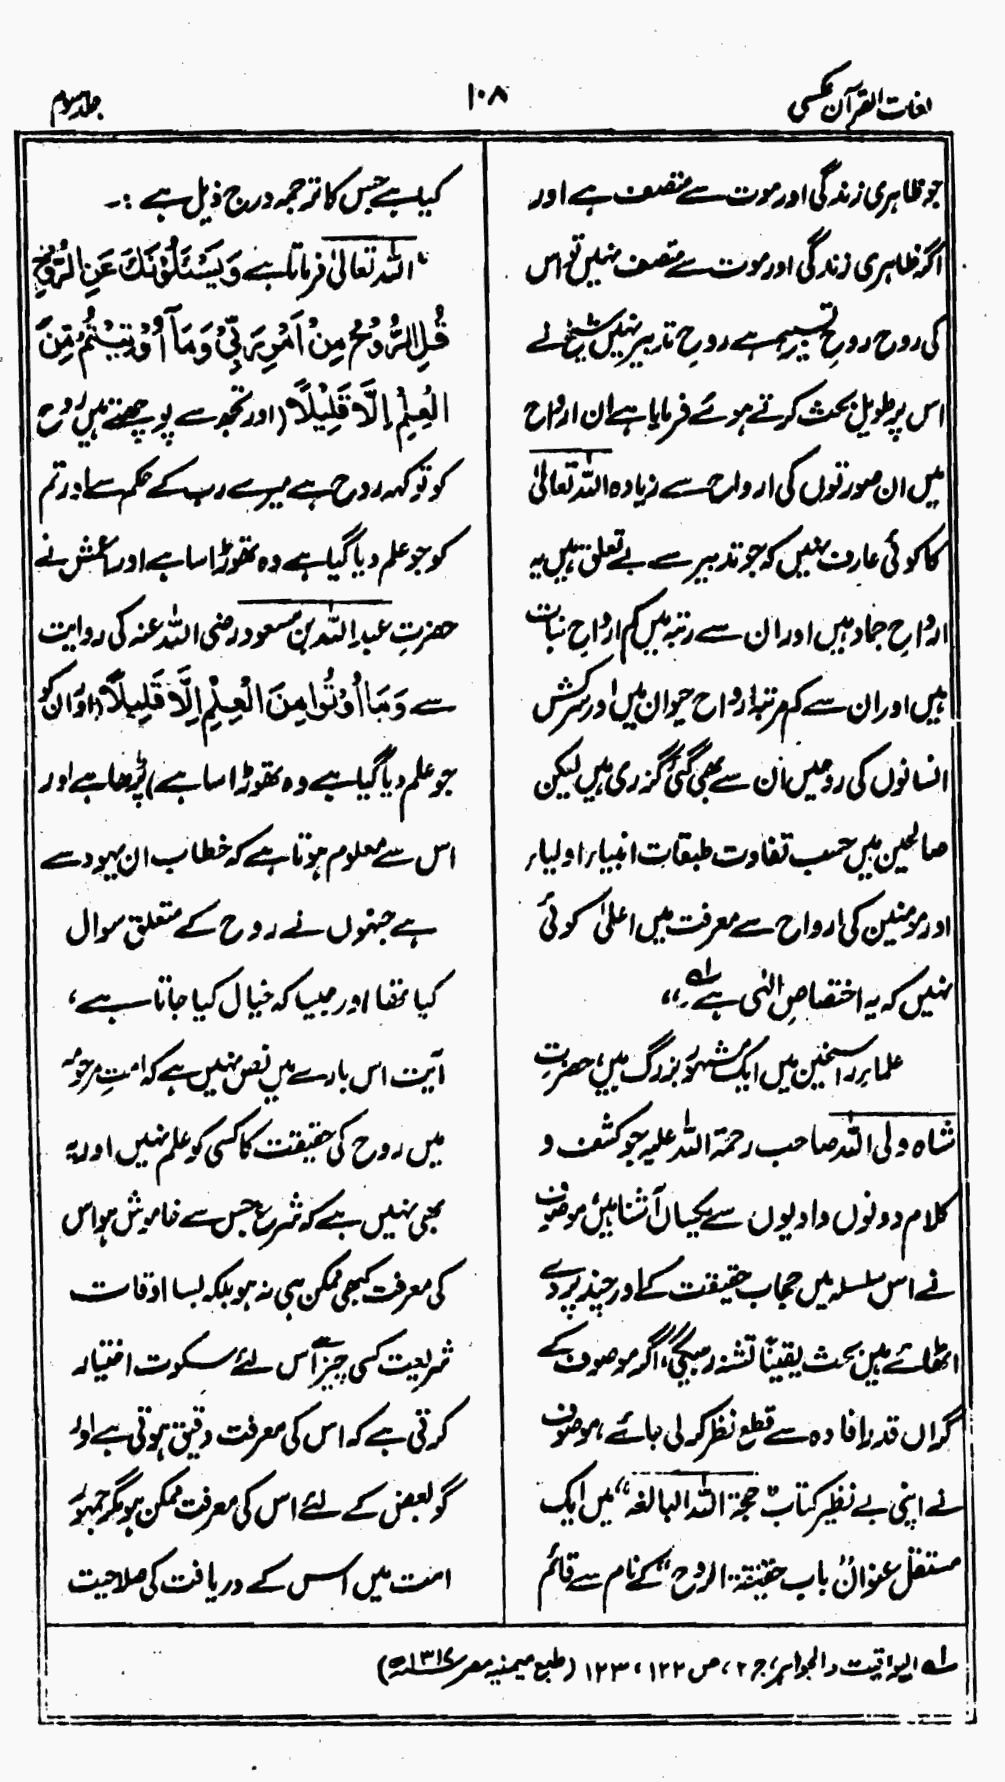 لغات القرآن عکسی
۱۰۸
جلد سوم
جو ظاہری زندگی اور موت سے متصف ہے اور
اگر ظاہری زندگی اور موت سے متصف نہیں تو اس
کی روح روحِ تسبیح ہے روحِ تدبیر نہیں شیخ نے
اس پر طویل بحث کرتے ہوئے فرمایا ہے ان ارواح
میں ان صورتوں کی ارواح سے زیادہ اللہ تعالیٰ
کا کوئی عارف نہیں کہ جو تدبیر سے بے تعلق ہیں یہ
ارواحِ جماد ہیں اور ان سے رتبہ میں کم ارواحِ نبات
ہیں اور ان سے کم مرتبہ ارواح حیوان میں اور سرکش
انسانوں کی روحیں ان سے بھی گئی گزری ہیں لیکن
صالحین میں حسب تفاوت طبقات انبیاء، اولیاء
اور مومنین کی ارواح سے معرفت میں اعلیٰ کوئی
نہیں کہ یہ اختصاصِ الٰہی ہے لہ،،
علماء راسخین میں ایک مشہور بزرگ ہیں، حضرت
شاہ ولی اللہ صاحب رحمۃ اللہ علیہ جو کشف و
کلام دونوں وادیوں سے یکساں آشنا ہیں، موصوف
نے اس سلسلہ میں حجاب حقیقت کے اور چند پردے
اٹھائے ہیں بحث یقیناً تشنہ رہیگی، اگر موصوف کے
گراں قدر افادہ سے قطع نظر کر لی جائے، موصوف
نے اپنی بے نظیر کتاب "حجۃ اللہ البالغہ" میں ایک
مستقل عنوان "باب حقیقۃ الروح" کے نام سے قائم
کیا ہے جس کا ترجمہ درج ذیل ہے :۔
"اللہ تعالیٰ فرماتا ہے وَيَسْئَلُوْنَكَ عَنِ الرُّوْحِ
قُلِ الرُّوْحُ مِنْ اَمْرِ رَبِّيْ وَمَآ اُوْتِيْتُمْ مِّنَ
الْعِلْمِ اِلَّا قَلِيْلًا (اور تجھ سے پوچھتے ہیں روح
کو تو کہہ روح ہے میرے رب کے حکم سے اور تم
کو جو علم دیا گیا ہے وہ تھوڑا سا ہے اور اعمش نے
حضرتِ عبداللہ بن مسعود رضی اللہ عنہ کی روایت
سے وَمَا اُوْتُوا مِنَ الْعِلْمِ اِلَّا قَلِيْلًا (اور ان کو
جو علم دیا گیا ہے وہ تھوڑا سا ہے) پڑھا ہے اور
اس سے معلوم ہوتا ہے کہ خطاب ان یہود سے
ہے جنہوں نے روح کے متعلق سوال
کیا تھا اور جیسا کہ خیال کیا جاتا ہے،
آیت اس بارے میں نص نہیں ہے کہ امتِ مرحومہ
میں روح کی حقیقت کا کسی کو علم نہیں اور یہ
بھی نہیں ہے کہ شرع جس سے خاموش ہو اس
کی معرفت کبھی ممکن ہی نہ ہو بلکہ بسا اوقات
شریعت کسی چیز سے اس لئے سکوت اختیار
کرتی ہے کہ اس کی معرفت دقیق ہوتی ہے اور
گو بعض کے لئے اس کی معرفت ممکن ہو مگر جمہور
امت میں اس کے دریافت کی صلاحیت
لہ الیواقیت والجواہر، ج ۲، ص ۱۲۲، ۱۲۳ (طبع میمنیہ مصر ۱۳۱۷ھ)